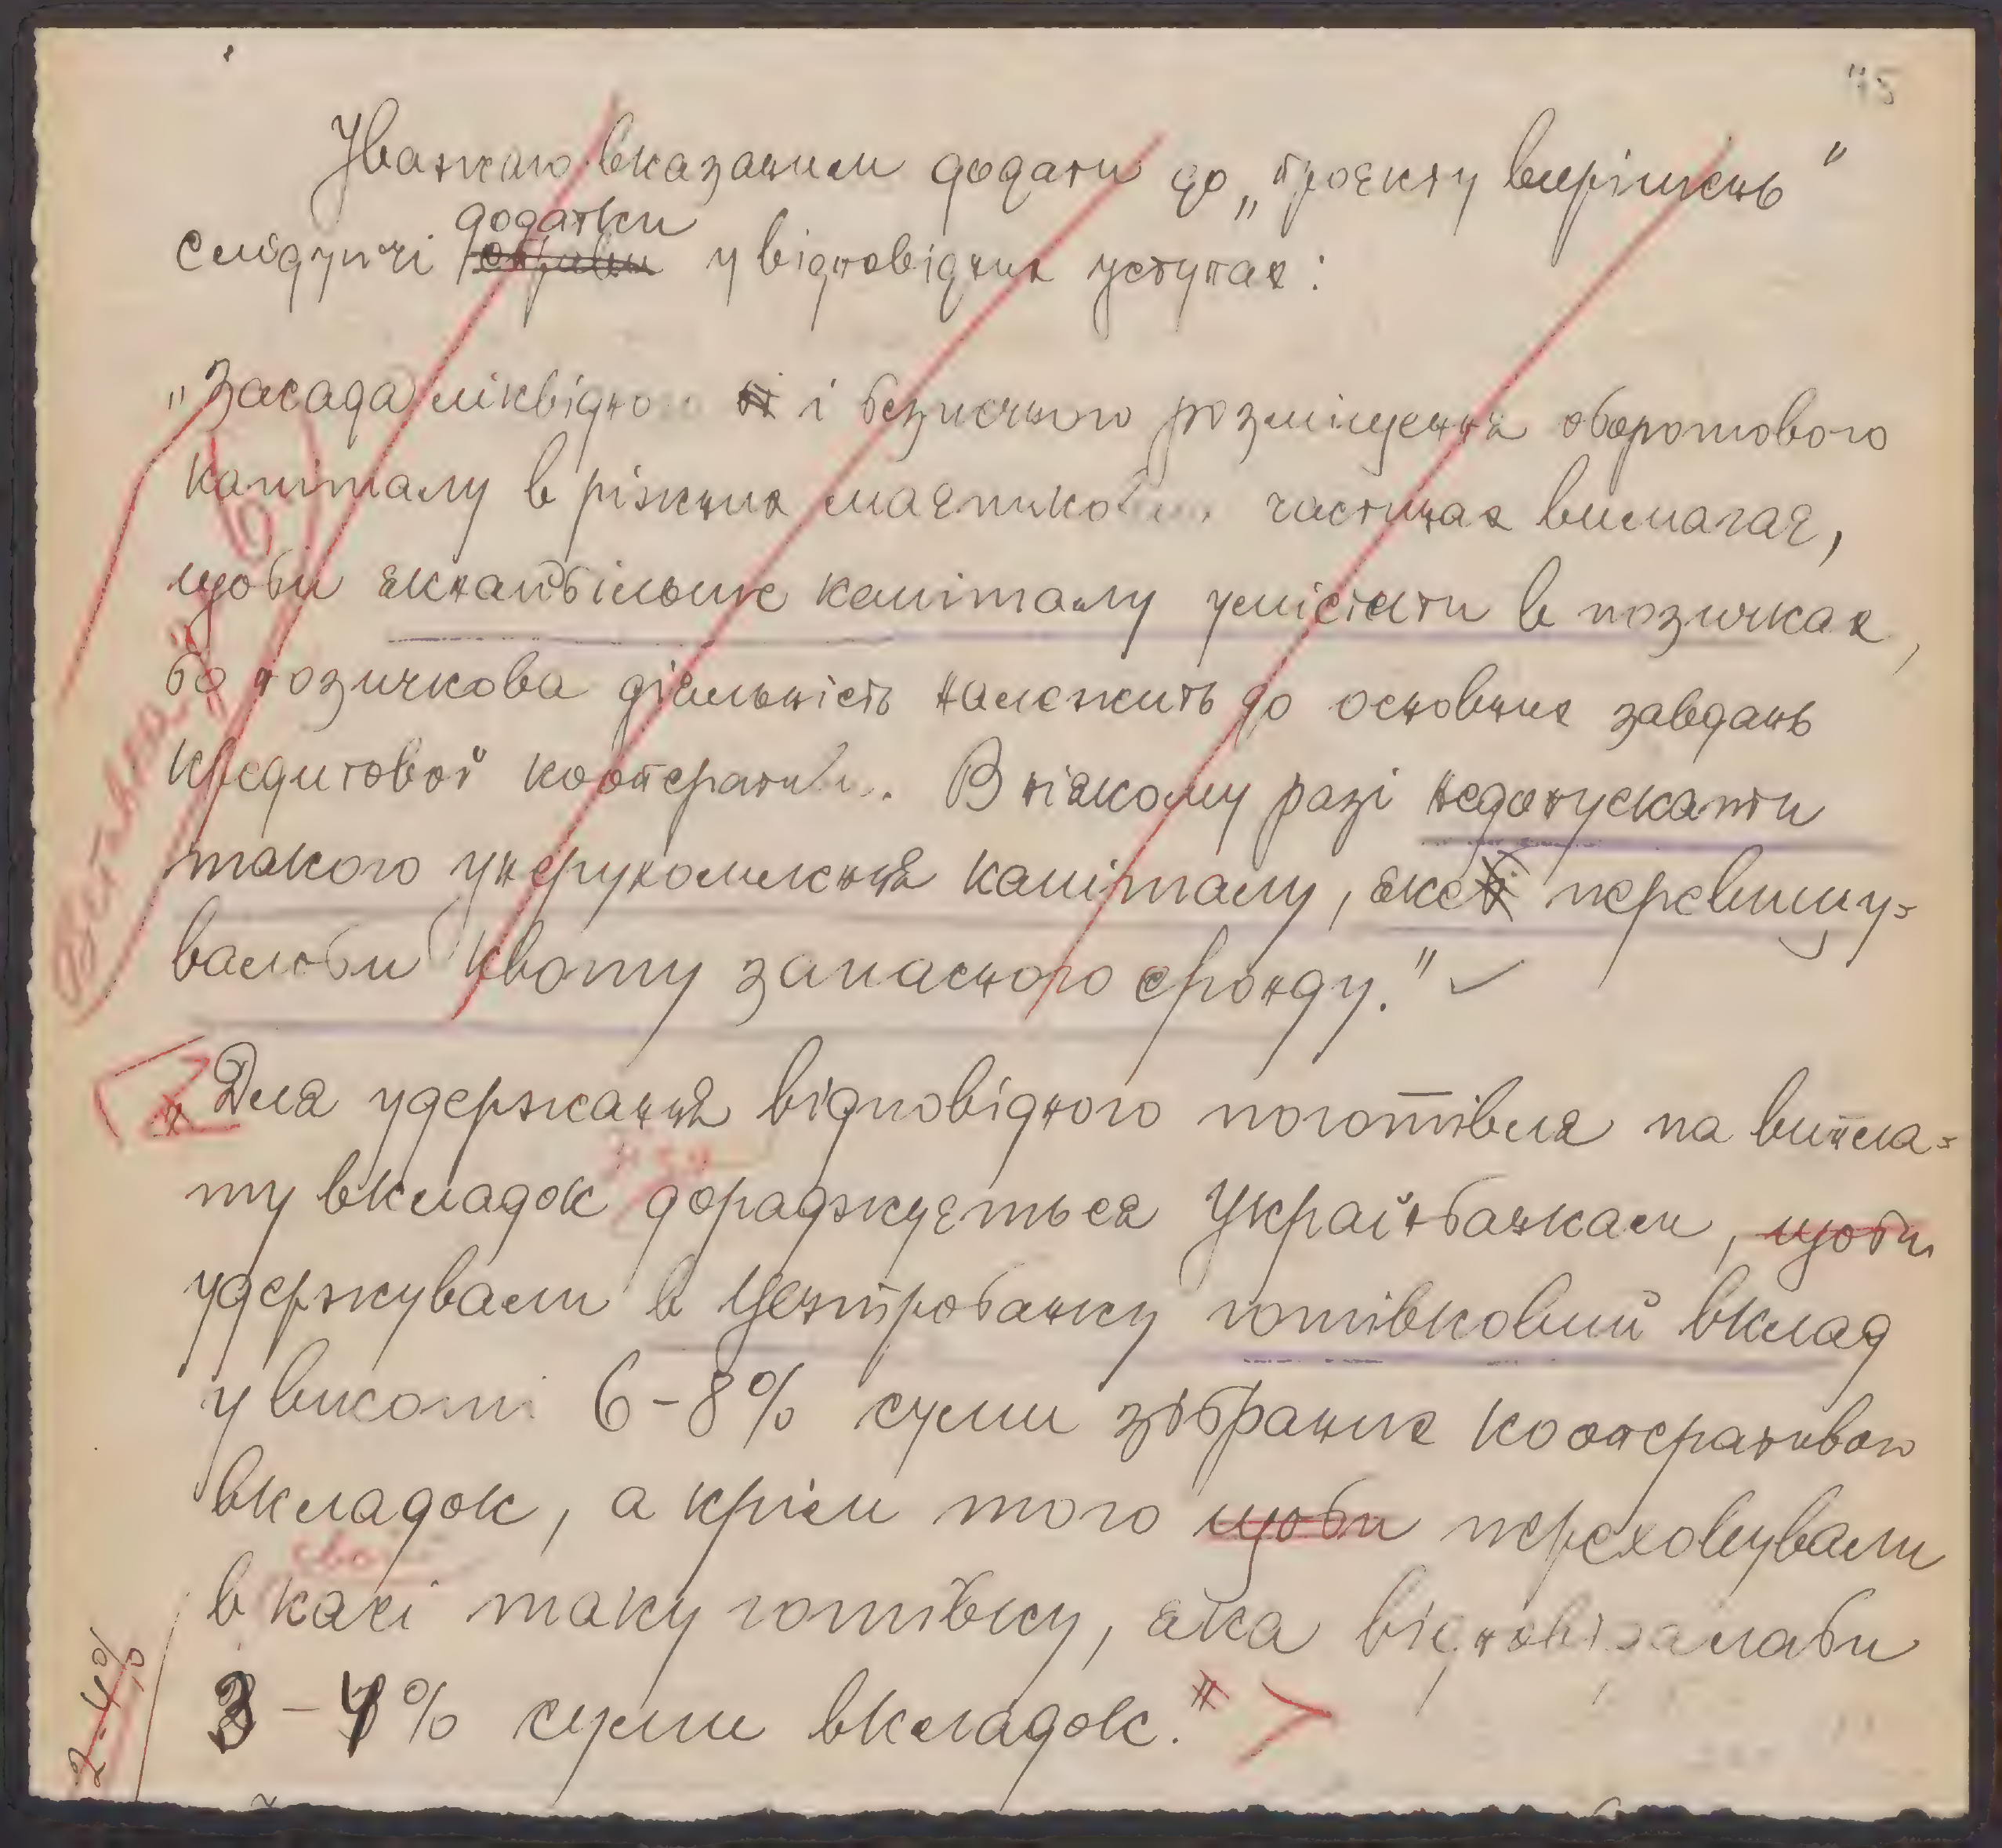 75
Уважаю вказаним додати до „проєкту вирішень"
слідуючі додатки у відповідних уступах:
„Засада ліквідного і безпечного розміщення оборотового
капіталу в ріжних маєткових частинах вимагає,
щоби якнайбільше капіталу умістити в позичках,
бо позичкова діяльність належить до основних завдань
кредитової кооперативи. В ніякому разі недопускати
такого унерухомлення капіталу, яке перевищу-
валоби квоту запасного фонду."
„Для удержання відповідного поготівля на випла-
ту вкладок дораджується Українбанкам, щоби
удержували в Центробанку готівковий вклад
у висоті 6-8% суми зібраних кооперативою
вкладок, а крім того щоби переховували
в касі таку готівку, яка відповідалаби
3-4% суми вкладок."
2-4%